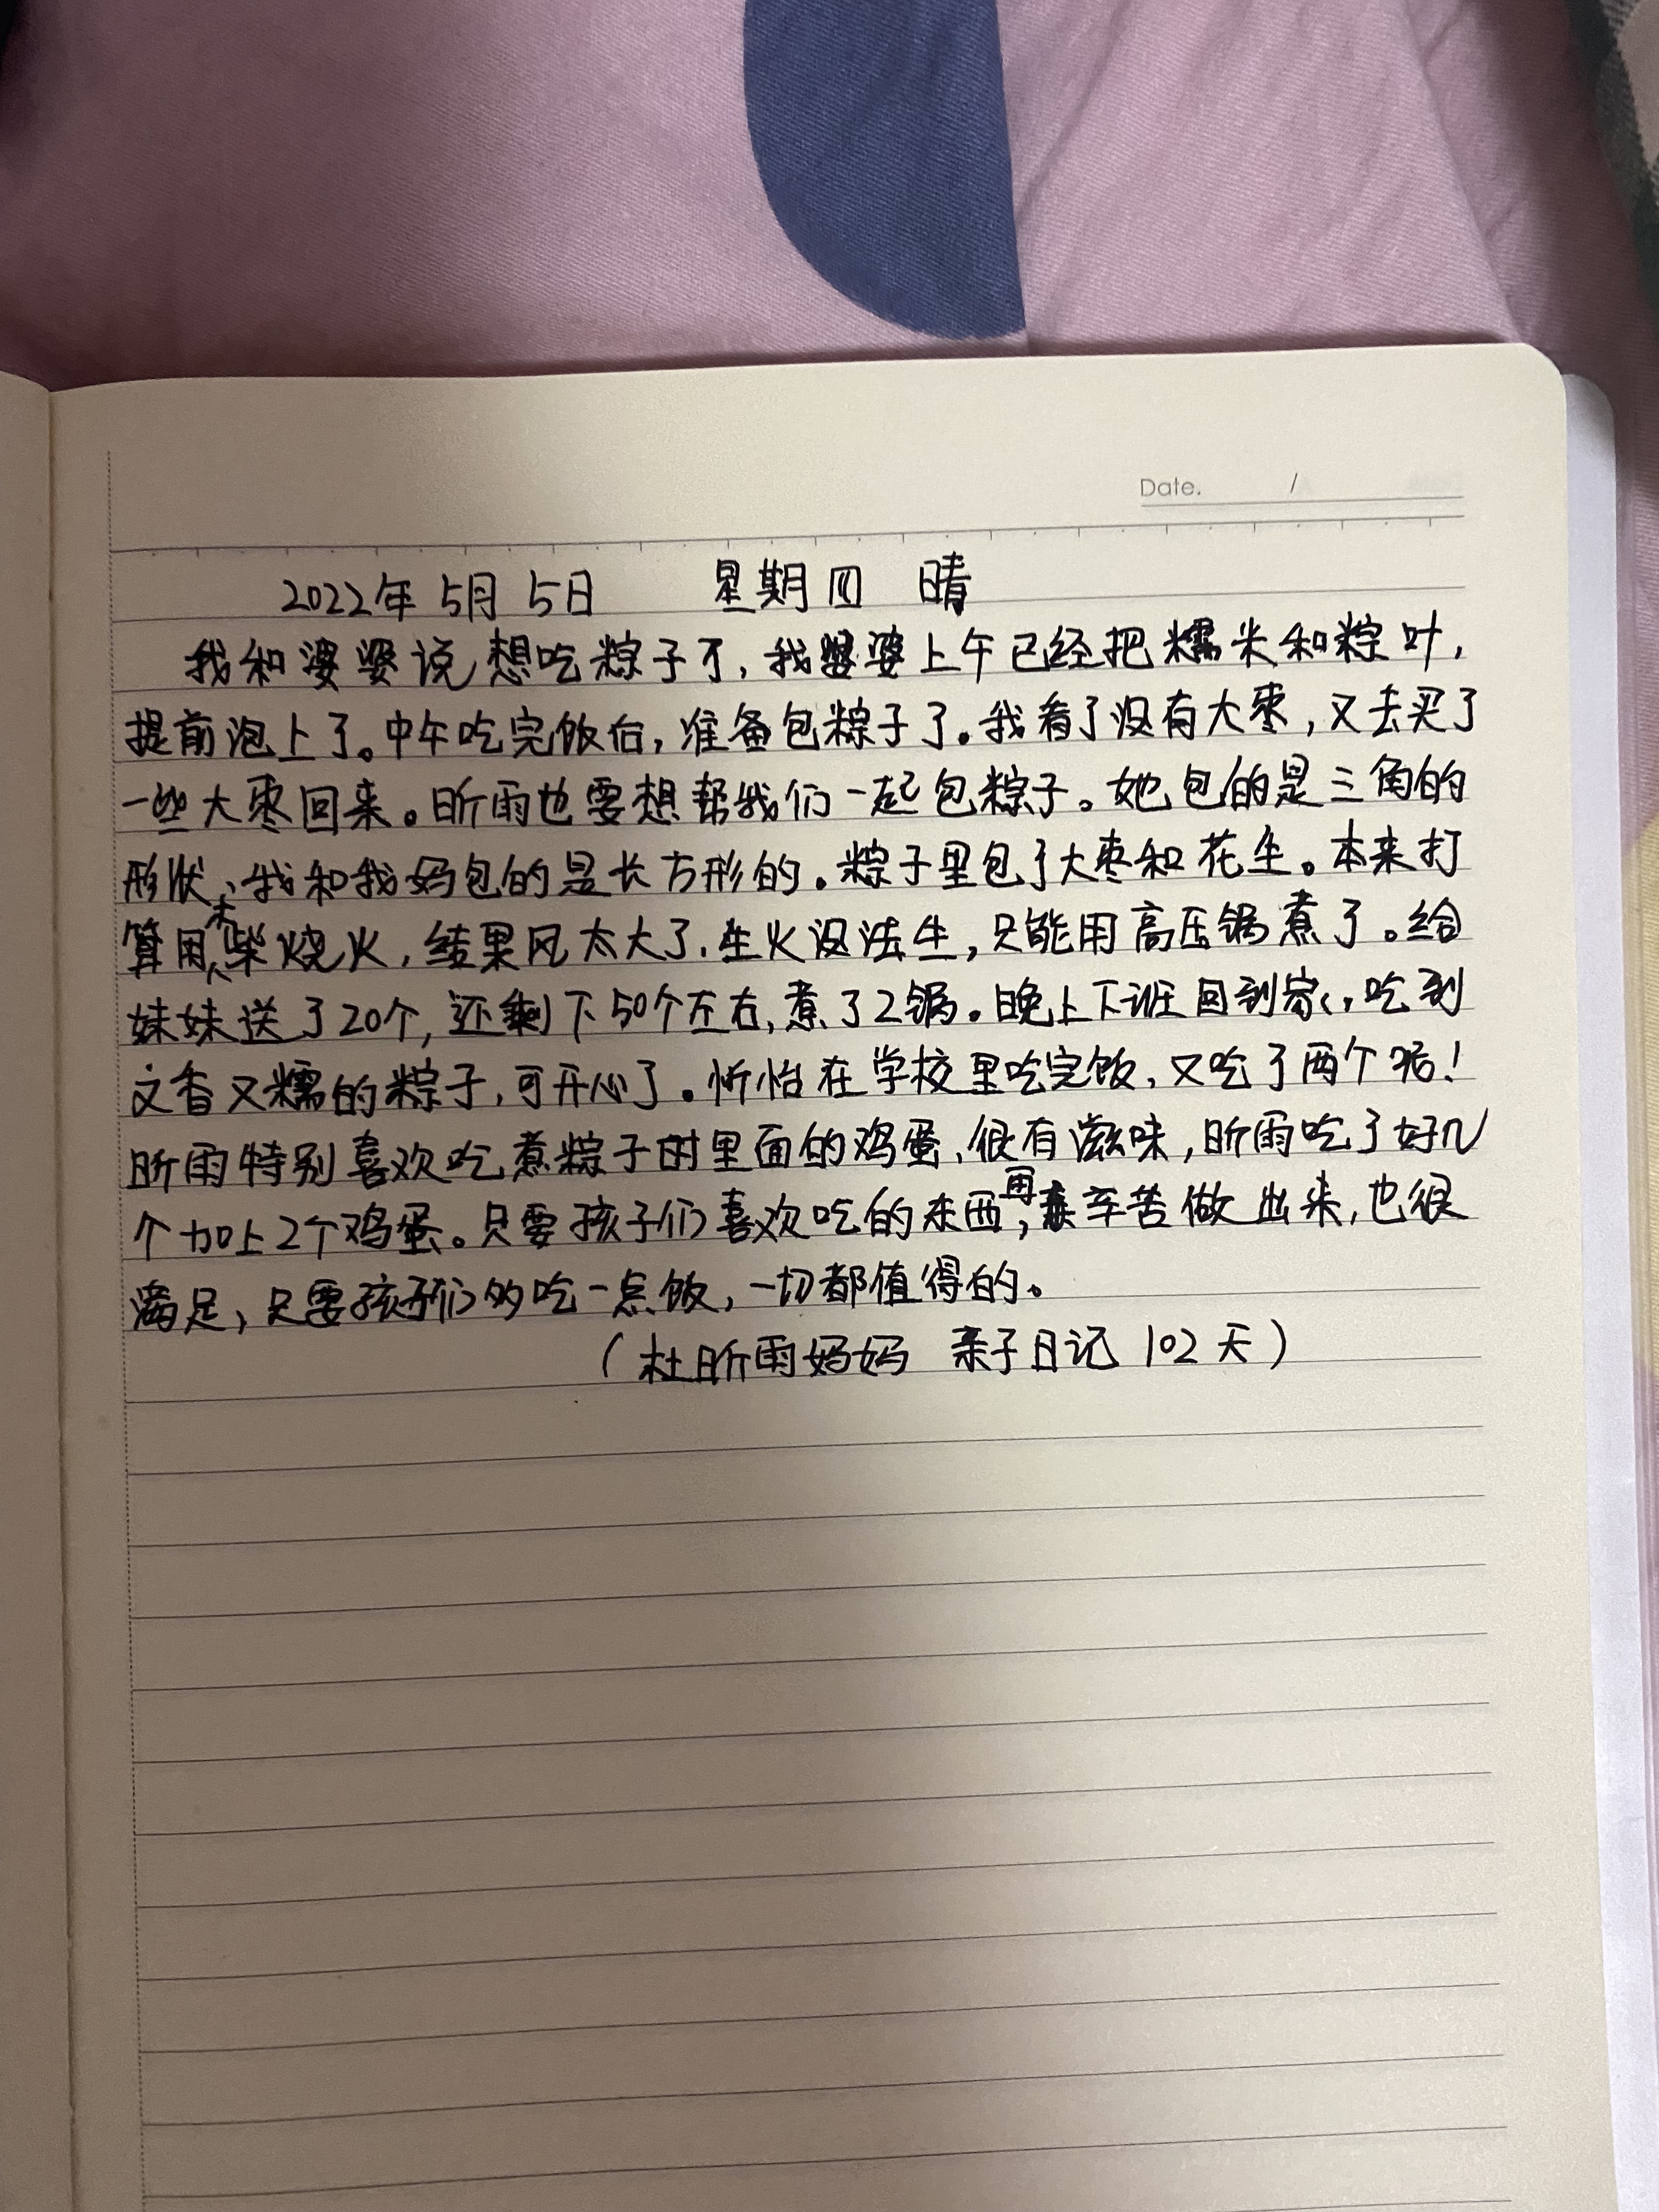 Date. /
2022年 5月 5日 星期四 晴
我和婆婆说想吃粽子了,我婆婆上午已经把糯米和粽叶,
提前泡上了。中午吃完饭后,准备包粽子了。我看了没有大枣,又去买了
一些大枣回来。昕雨也要想帮我们一起包粽子。她包的是三角的
形状、我和我妈包的是长方形的。粽子里包了大枣和花生。本来打
算用木柴烧火,结果风太大了.生火没法生,只能用高压锅煮了。给
妹妹送了20个,还剩下50个左右,煮了2锅。晚上下班回到家,吃到
又香又糯的粽子,可开心了。忻怡在学校里吃完饭,又吃了两个呢!
昕雨特别喜欢吃煮粽子时里面的鸡蛋、很有滋味,昕雨吃了好几
个加上2个鸡蛋。只要孩子们喜欢吃的东西,再辛苦做出来,也很
满足,只要孩子们多吃一点饭,一切都值得的。
(杜昕雨妈妈 亲子日记 102天)